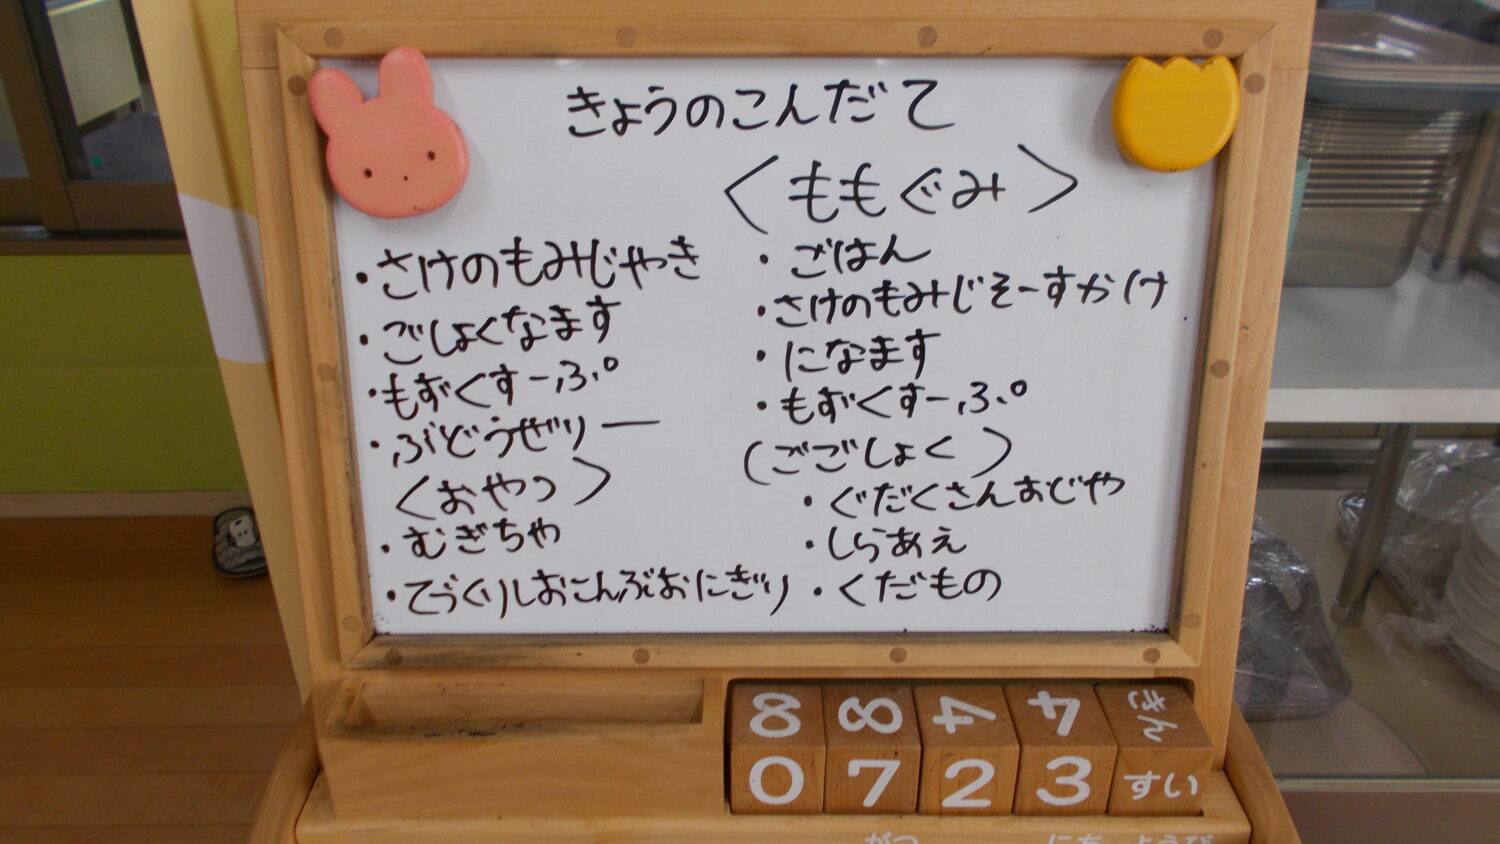 きょうのこんだて
・さけのもみじやき
・ごしょくなます
・もずくすーぷ
・ぶどうぜりー
〈おやつ〉
・むぎちゃ
・てづくりしおこんぶおにぎり
〈ももぐみ〉
・ごはん
・さけのもみじそーすかけ
・になます
・もずくすーぷ
(ごごしょく)
・ぐだくさんおじや
・しらあえ
・くだもの
8 8 4 4 きん
0 7 2 3 すい
がつ にち ようび